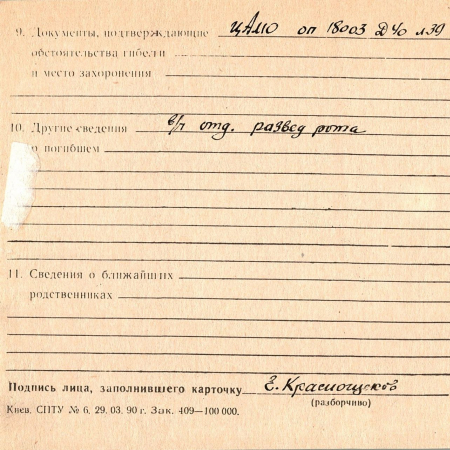 9. Документы, подтверждающие ЦАМО оп 18003 Д 40 л 39
обстоятельства гибели
и место захоронения
10. Другие сведения в/ч отд. развед рота
о погибшем
11. Сведения о ближайших
родственниках
Подпись лица, заполнившего карточку Е. Красногщеков
(разборчиво)
Киев. СПТУ № 6. 29. 03. 90 г. Зак. 409—100 000.